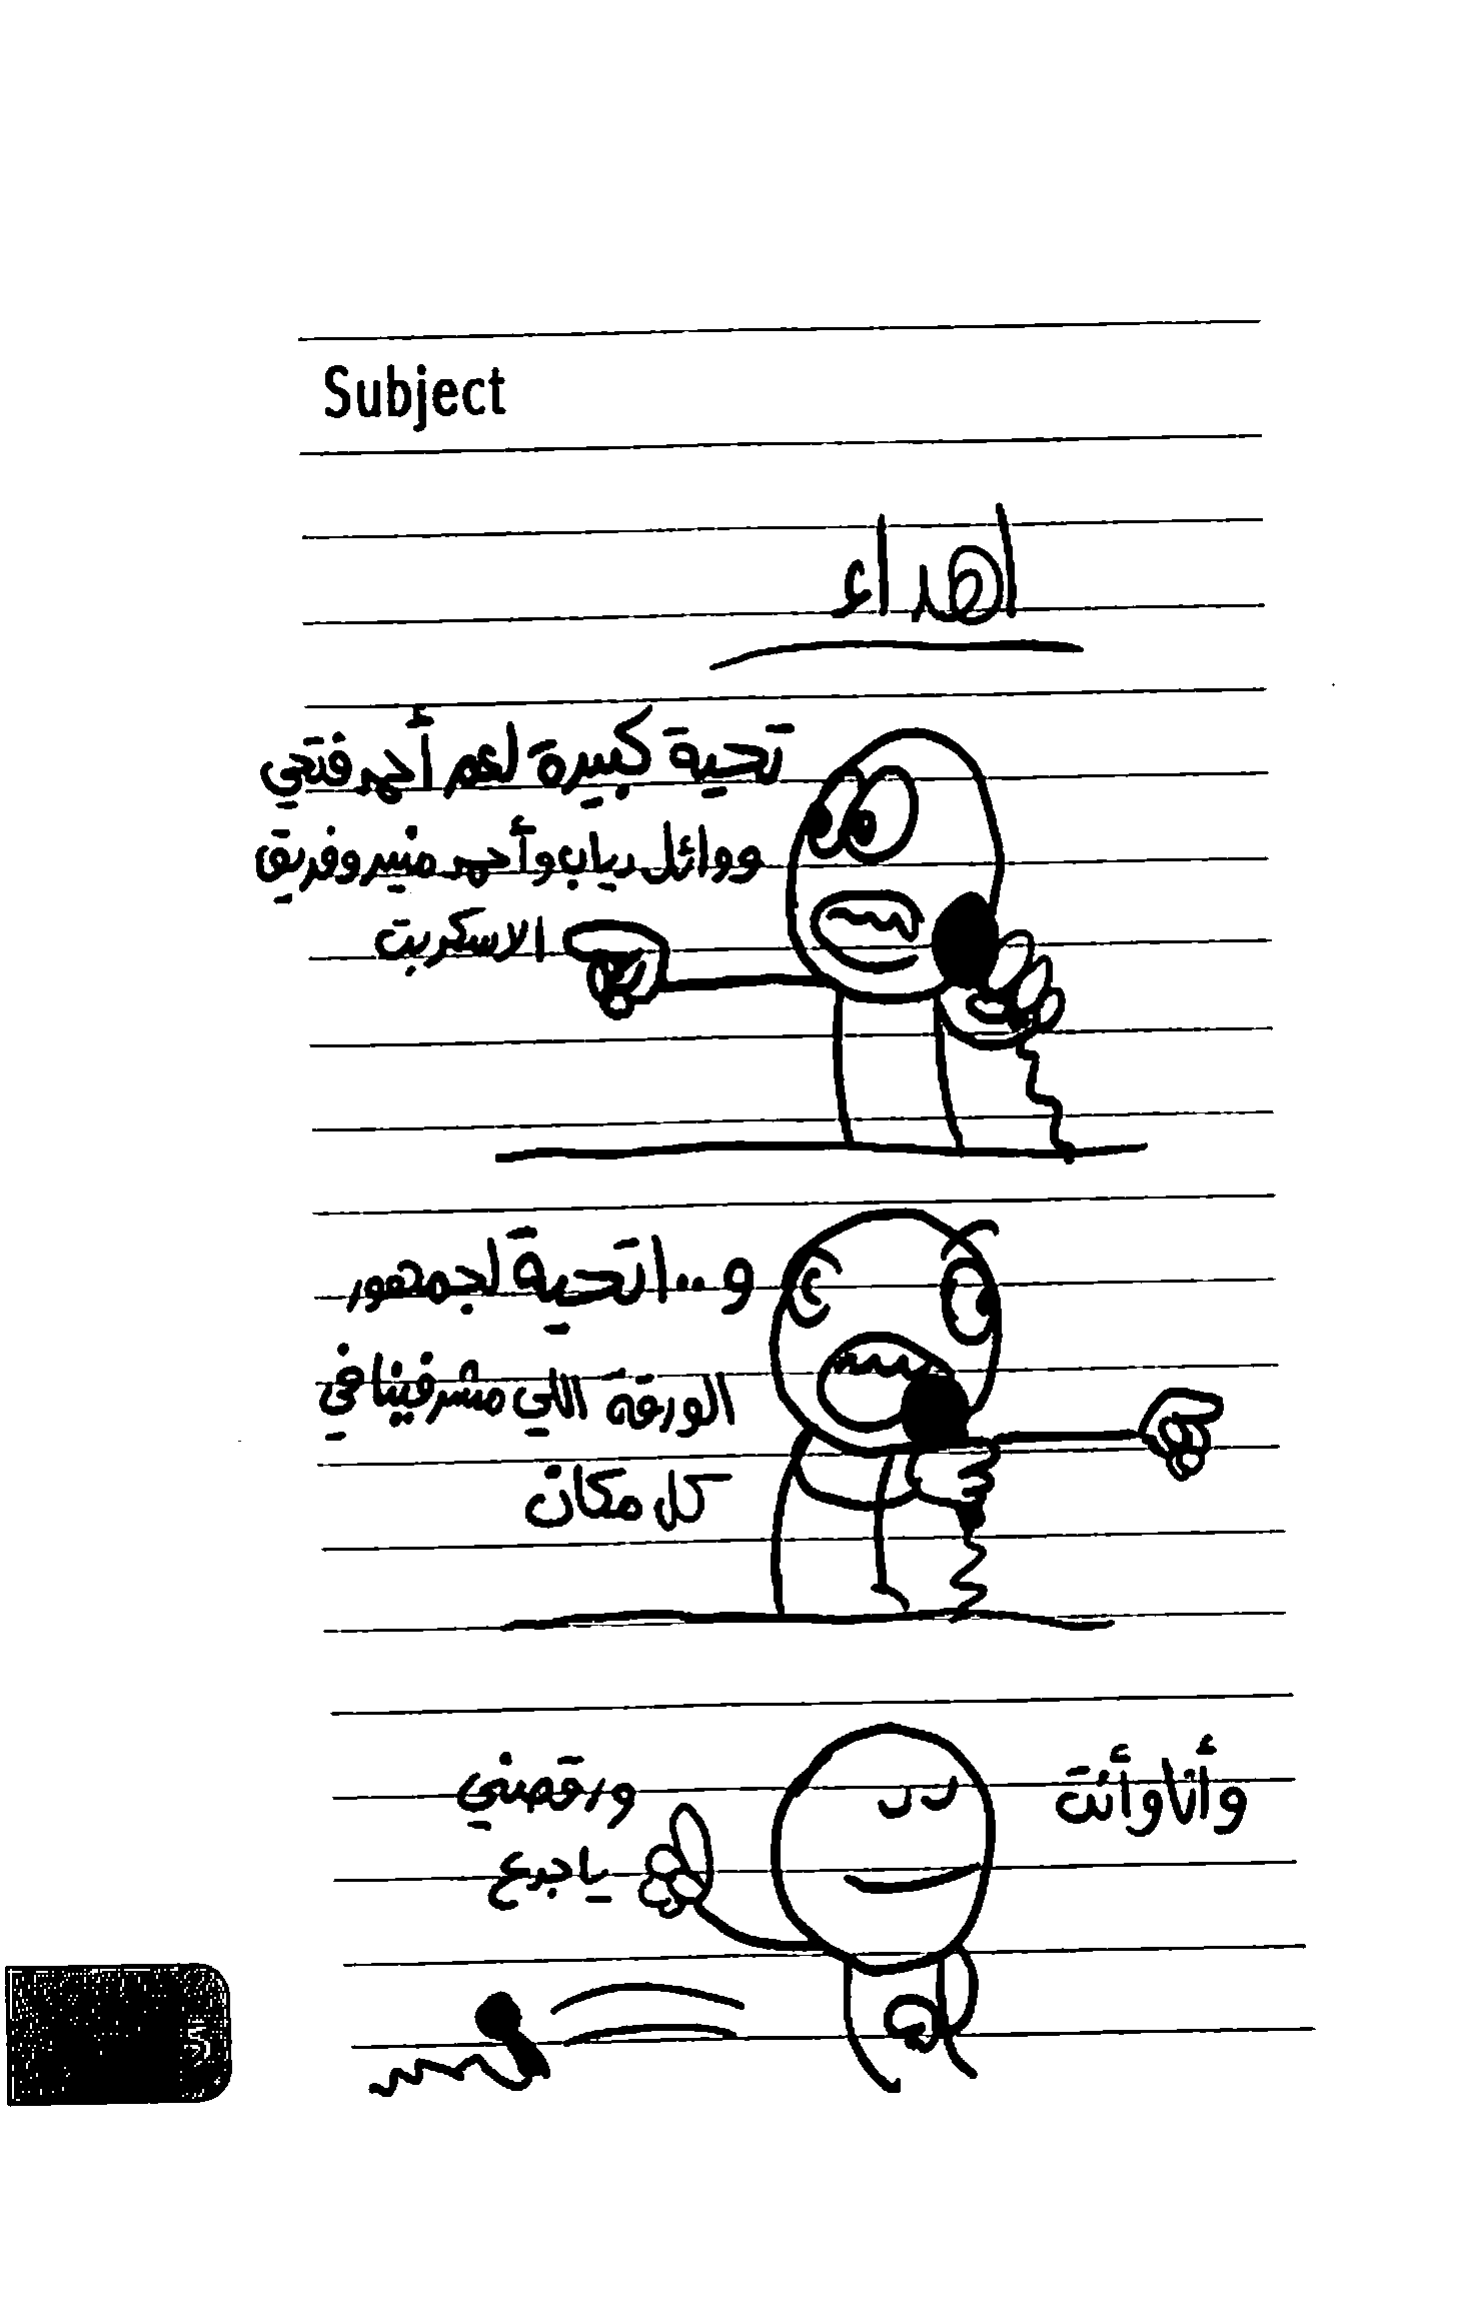 Subject
اهداء
تحية كبيرة لعم أحمد فتحي
ووائل دياب وأحمد منير وفريق
الاسكريبت
و..ا تحية لجمهور
الورقة اللي مشرفينا في
كل مكان
وأنا وأنت
ورقصني
يا جدع
5